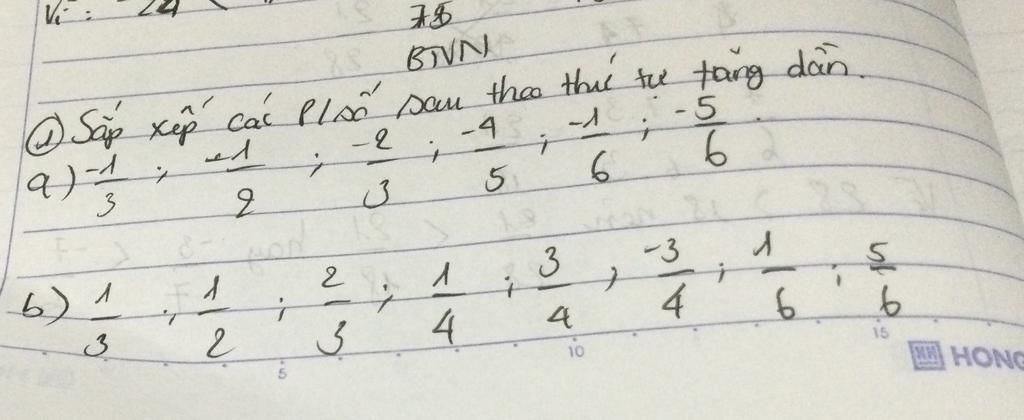 Vì: -24 <
75
BTVN
① Sắp xếp các P/số sau theo thứ tự tăng dần.
a) -1/3 ; -1/2 ; -2/3 ; -4/5 ; -1/6 ; -5/6.
b) 1/3 ; 1/2 ; 2/3 ; 1/4 ; 3/4 ; -3/4 ; 1/6 ; 5/6
5 10 15
HONG